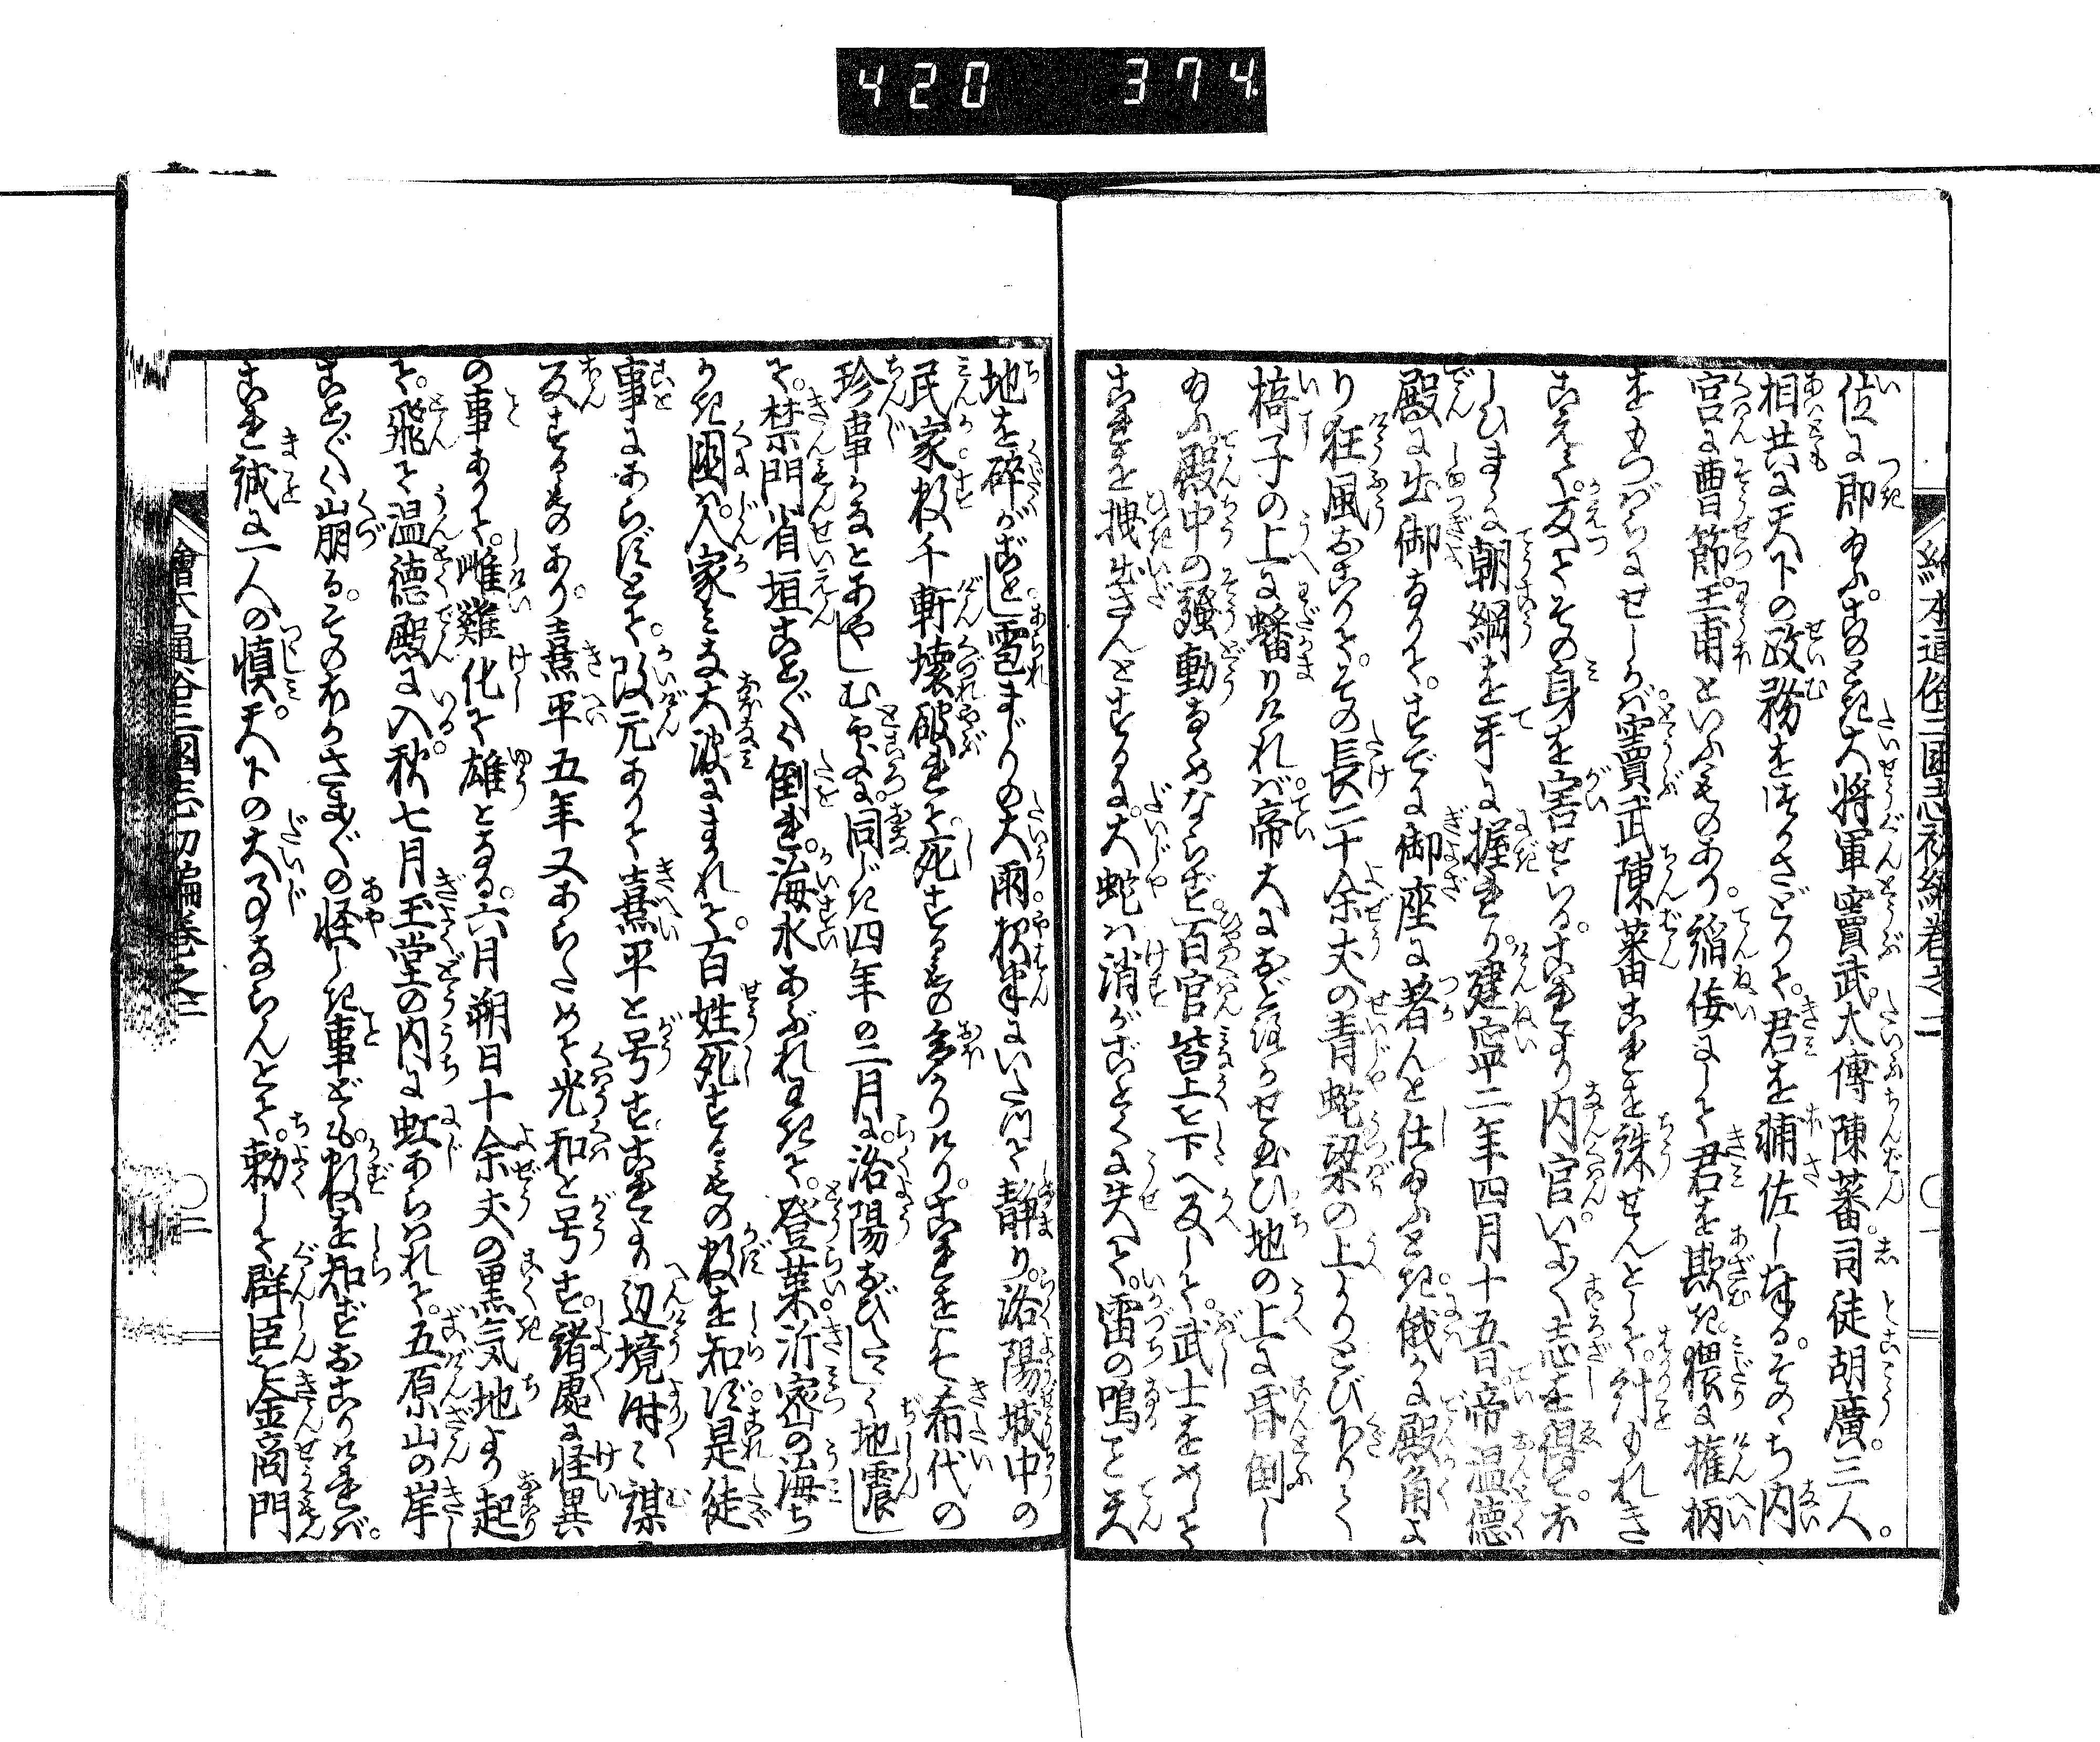 420 374
繪本通俗三國志初編卷之二
位に即給ふ。このとき大将軍竇武太傅陳蕃司徒胡廣三人。
相共に天下の政務をつかさどりて。君を補佐し奉る。そのゝち内
官に曹節王甫といふものあり。諂侫にして君を欺き猥に権柄
をもつぱらにせしかば竇武陳蕃これを誅せんとして。計もれき
こえて。反てその身を害せらる。これより内官いよ〳〵志を得て。ほ
しひまゝに朝綱を手に握れり。建寧二年四月十五日帝温徳
殿に出御なりて。すでに御座に着んと仕給ふとき俄かに殿角よ
り狂風おこりて。その長二十余丈の青蛇梁の上よりとび下りて
椅子の上に蟠りければ帝大におどろかせ玉ひ地の上に昏倒し
給ふ殿中の騒動なゝめならず。百官皆上を下へ反して。武士をめして
これを拽出さんとするに。大蛇ハ消がごとくに失て。雷の鳴こと天
地を碎がごとし雹まじりの大雨夜半にいたつて静り。洛陽城中の
民家数千軒壊破れて。死するもの多かりけり。これを七希代の
珍事かなとあやしむ処に。同じき四年の二月に。洛陽おびたゝしく地震し
て。禁門省垣こと〴〵く倒れ。海水あふれわきて。登莱沂密の海ち
かき国ハ人家ミな大波にまかれて。百姓死するもの数を知らず是徒
事にあらずとて。改元ありて熹平と号すこれより辺境時々謀
反するものあり。熹平五年又あらためて光和と号す。諸處に怪異
の事ありて。雌雞化て雄となる。六月朔日十余丈の黒気地より起
て。飛て温徳殿に入。秋七月玉堂の内に虹あらハれて。五原山の岸
こと〴〵く山崩る。そのほかさま〴〵の怪しき事ども。数を知ずおこりければ。
これ誠に一人の慎。天下の大事ならんとて。勅して群臣を金商門
繪本通俗三國志初編卷之二